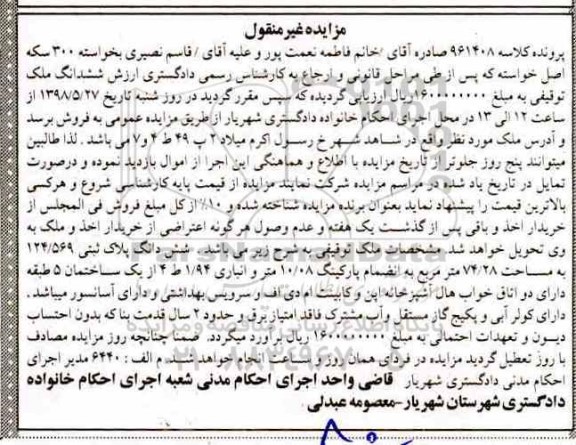 مزایده غیرمنقول
پرونده کلاسه ۹۶۱۴۰۸ صادره آقای /خانم فاطمه نعمت پور و علیه آقای /قاسم نصیری بخواسته ۳۰۰ سکه
اصل خواسته که پس از طی مراحل قانونی و ارجاع به کارشناس رسمی دادگستری ارزش ششدانگ ملک
توقیفی به مبلغ ۱۶۰۰۰۰۰۰۰۰ ریال ارزیابی گردیده که سپس مقرر گردید در روز شنبه تاریخ ۱۳۹۸/۵/۲۷ از
ساعت ۱۲ الی ۱۳ در محل اجرای احکام خانواده دادگستری شهریار از طریق مزایده عمومی به فروش برسد
و آدرس ملک مورد نظر واقع در شاهد شهر خ رسول اکرم میلاد ۲ پ ۴۹ ط ۴ و۷ می باشد . لذا طالبین
میتوانند پنج روز جلوتر از تاریخ مزایده با اطلاع و هماهنگی این اجرا از اموال بازدید نموده و درصورت
تمایل در تاریخ یاد شده در مراسم مزایده شرکت نمایند مزایده از قیمت پایه کارشناسی شروع و هرکسی
بالاترین قیمت را پیشنهاد نماید بعنوان برنده مزایده شناخته شده و ۱۰٪ از کل مبلغ فروش فی المجلس از
خریدار اخذ و باقی پس از گذشت یک هفته و عدم وصول هر گونه اعتراضی از خریدار اخذ و ملک به
وی تحویل خواهد شد. مشخصات ملک توقیفی به شرح زیر می باشد . شش دانگ پلاک ثبتی ۱۲۴/۵۶۹
به مساحت ۷۴/۲۸ متر مربع به انضمام پارکینگ ۱۰/۰۸ متر و انباری ۱/۹۴ ط ۴ از یک ساختمان ۵ طبقه
دارای دو اتاق خواب هال آشپزخانه اپن و کابینت ام دی اف و سرویس بهداشتی و دارای آسانسور میباشد.
دارای کولر آبی و پکیج گاز مستقل و آب مشترک فاقد امتیاز برق و حدود ۲ سال قدمت بنا که بدون احتساب
دیون و تعهدات احتمالی به مبلغ ۱۶۰۰۰۰۰۰۰۰ ریال برآورد میگردد. ضمنا چنانچه روز مزایده مصادف
با روز تعطیل گردید مزایده در فردای همان روز و ساعت انجام خواهد شد. م الف : ۶۴۴۰ مدیر اجرای
احکام مدنی دادگستری شهریار قاضی واحد اجرای احکام مدنی شعبه اجرای احکام خانواده
دادگستری شهرستان شهریار-معصومه عبدلی